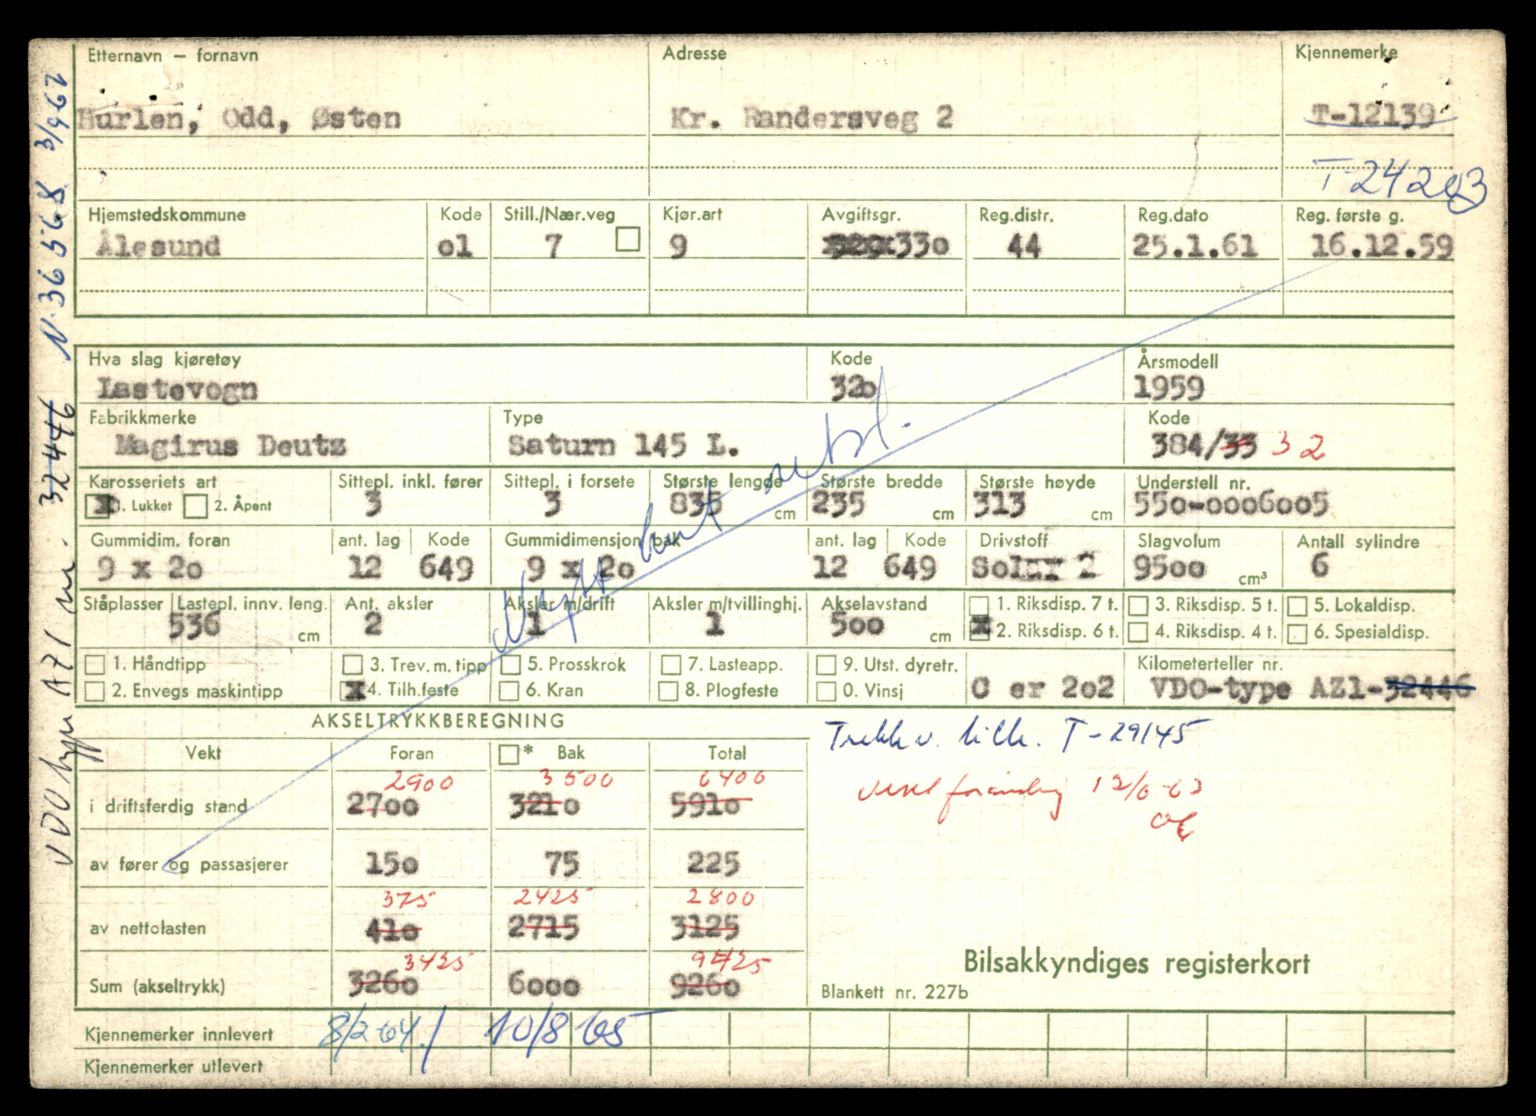 Etternavn — fornavn Adresse Kjennemerke
Hurlen, Odd, Østen Kr. Randersveg 2 T-12139
T-24283
Hjemstedskommune Kode Still./Nær.veg Kjør.art Avgiftsgr. Reg.distr. Reg.dato Reg. første g.
Ålesund o1 7 9 33o 44 25.1.61 16.12.59
Hva slag kjøretøy Kode Årsmodell
Lastevogn 32o 1959
Fabrikkmerke Type Kode
Magirus Deutz Saturn 145 L. 384/33 32
Karosseriets art Sittepl. inkl. fører Sittepl. i forsete Største lengde Største bredde Største høyde Understell nr.
X 1. Lukket 2. Åpent 3 3 835 cm 235 cm 313 cm 55o-ooo6oo5
Gummidim. foran ant. lag Kode Gummidimensjon bak ant. lag Kode Drivstoff Slagvolum Antall sylindre
9 x 2o 12 649 9 x 2o 12 649 Solar 2 95oo cm³ 6
Ståplasser Lastepl. innv. leng. Ant. aksler Aksler m/drift Aksler m/tvillinghj. Akselavstand 1. Riksdisp. 7 t. 3. Riksdisp. 5 t. 5. Lokaldisp.
536 cm 2 1 1 5oo cm X 2. Riksdisp. 6 t. 4. Riksdisp. 4 t. 6. Spesialdisp.
1. Håndtipp 3. Trev. m. tipp 5. Prosskrok 7. Lasteapp. 9. Utst. dyretr. Kilometerteller nr.
2. Envegs maskintipp X 4. Tilh.feste 6. Kran 8. Plogfeste 0. Vinsj C er 2o2 VDO-type AZ1-32446
Nytt kort utst.
AKSELTRYKKBEREGNING
Vekt Foran * Bak Total
2900 3500 6400
i driftsferdig stand 27oo 321o 591o
av fører og passasjerer 15o 75 225
375 2425 2800
av nettolasten 41o 2715 3125
3425 9425
Sum (akseltrykk) 326o 6ooo 926o
Trekk v. tilh. T-29145
12/6-62
Bilsakkyndiges registerkort
Blankett nr. 227b
Kjennemerker innlevert 8/2-64 / 10/8 65
Kjennemerker utlevert
VDO type AZ1 nr. 32446 N. 36568 3/9 62